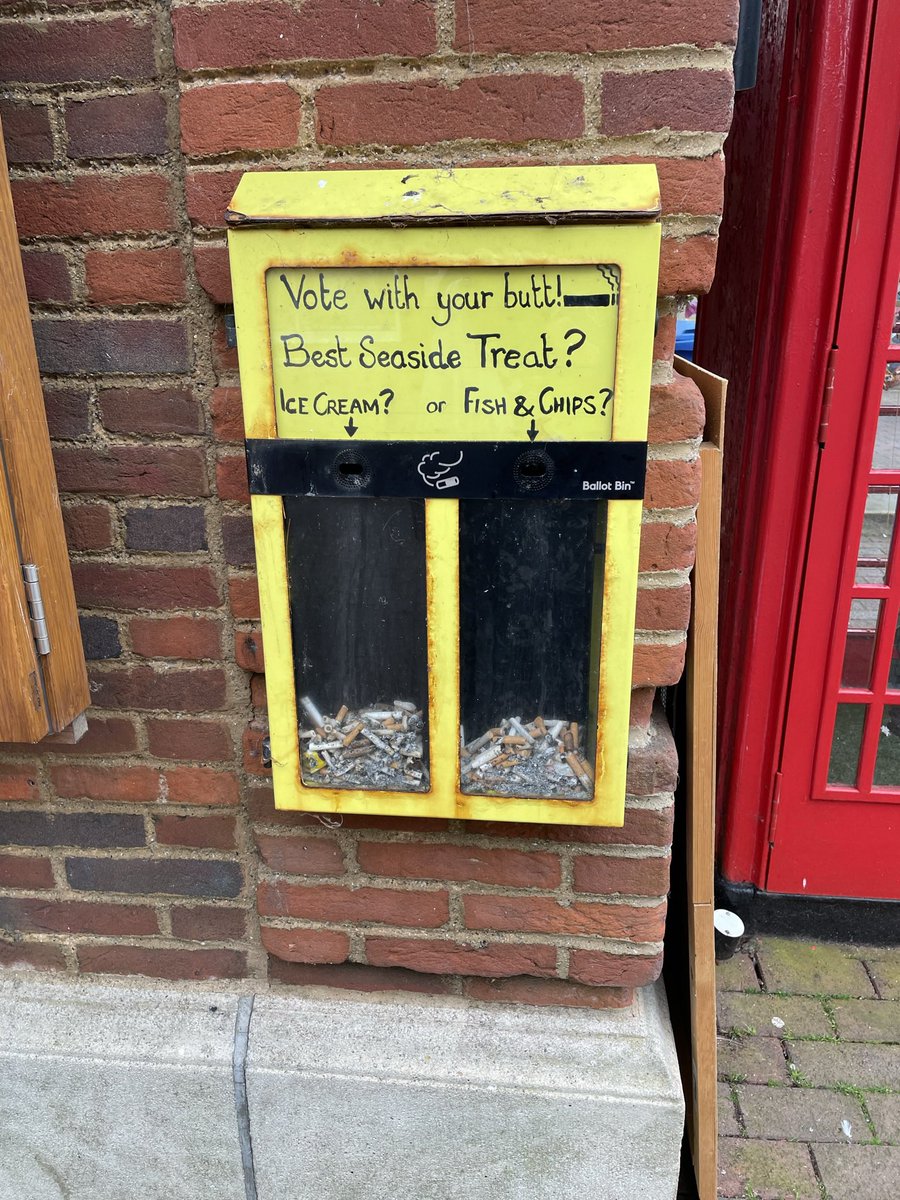 Vote with your butt!
Best Seaside Treat?
ICE CREAM? or FISH & CHIPS?
Ballot Bin™